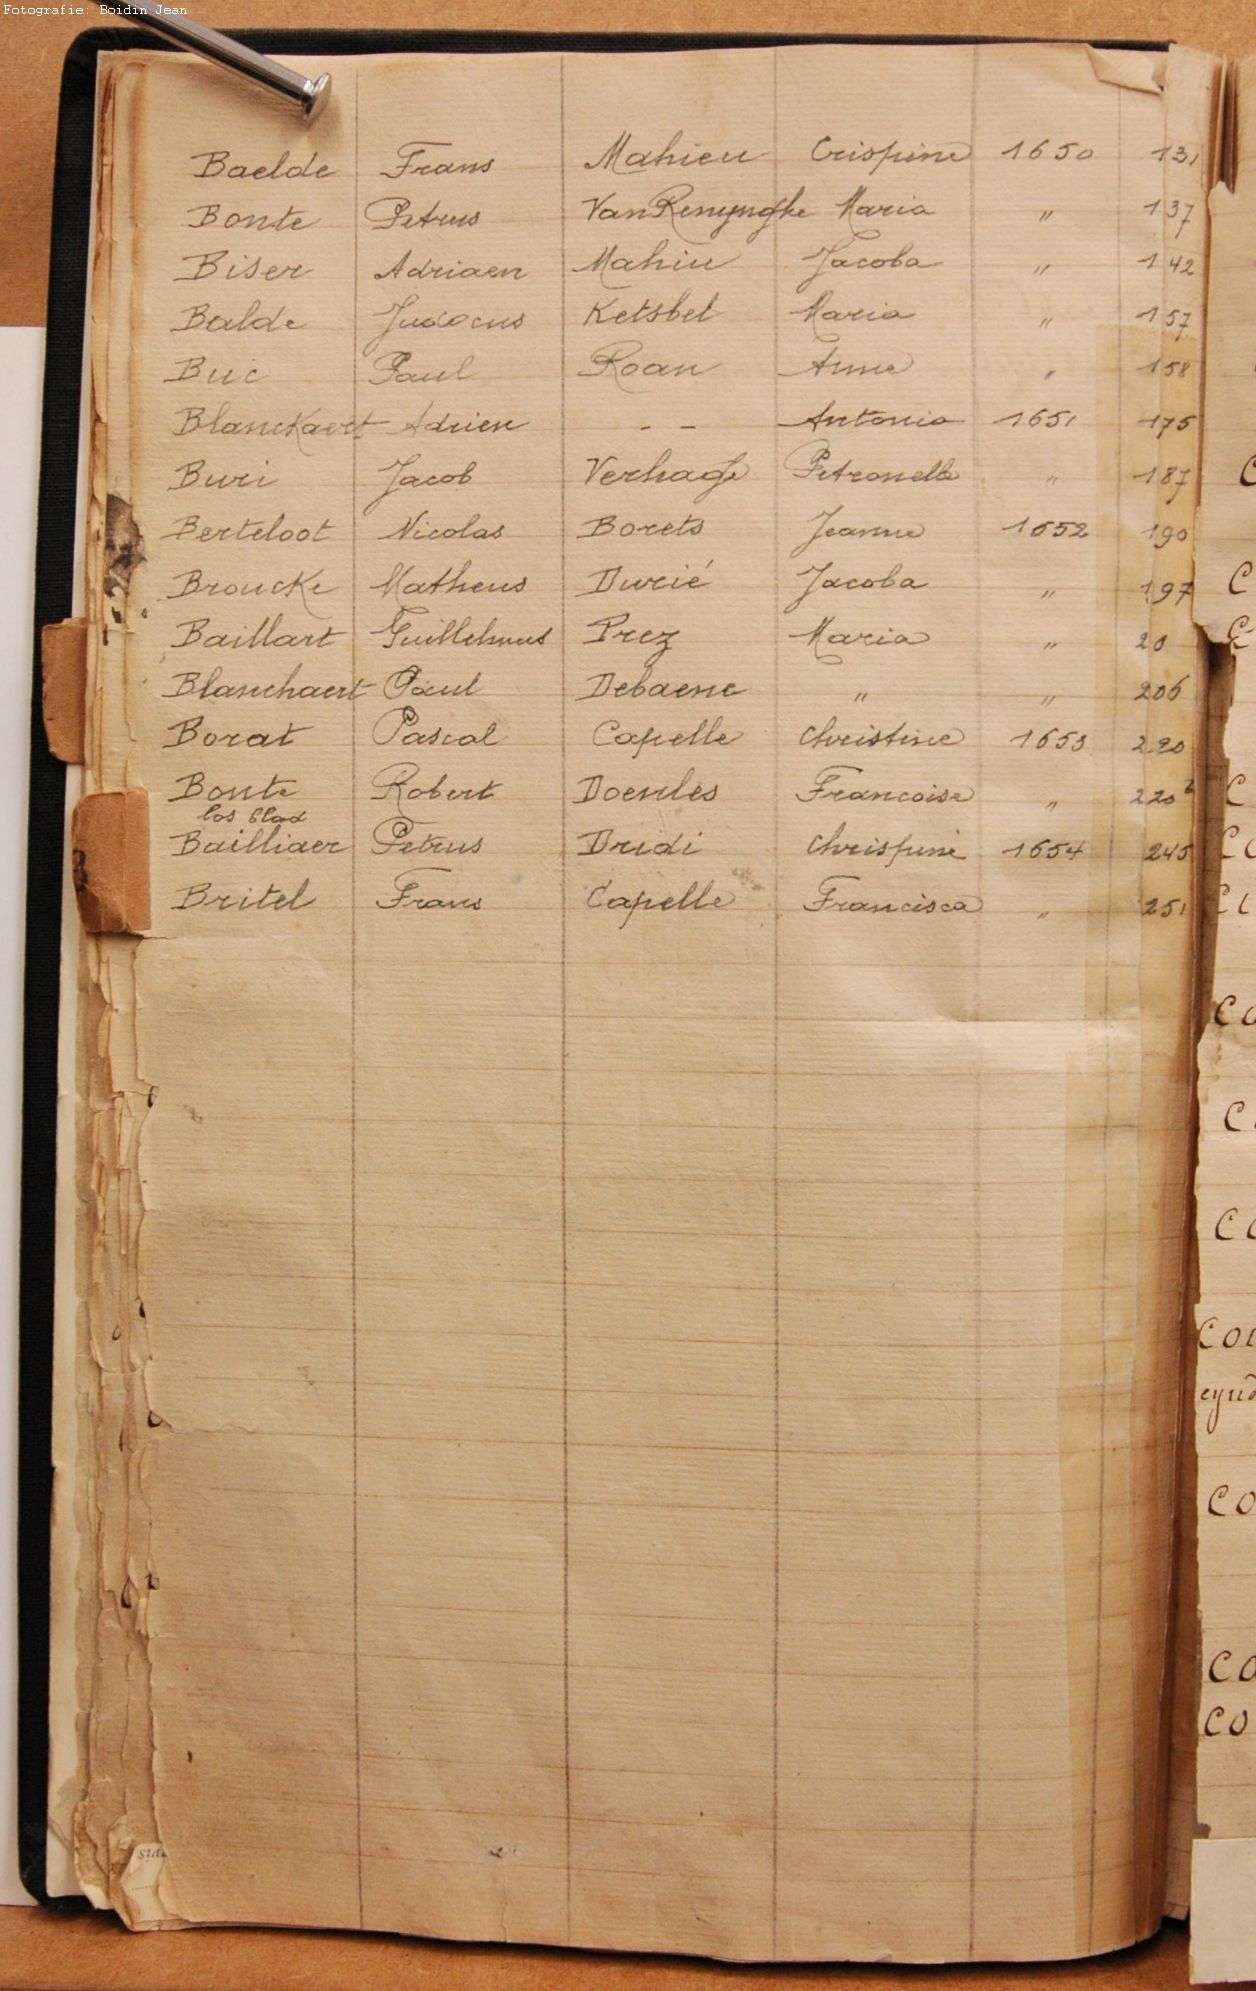 Fotografie: Boidin Jean
Baelde Frans Mahieu Crispine 1650 131
Bonte Petrus Van Renynghe Maria " 137
Biser Adriaen Mahiu Jacoba " 142
Balde Judocus Ketsbel Maria " 157
Buc Paul Roan Anne " 158
Blanckaert Adrien - - Antonia 1651 175
Buri Jacob Verhage Petronella " 187
Berteloot Nicolas Borets Jeanne 1652 190
Broucke Matheus Durié Jacoba " 197
Baillart Guillelmus Prez Maria " 20
Blanchaert Paul Debaene " " 206
Borat Pascal Capelle Christine 1653 220
Bonte Robert Doenles Francoise " 220
los blad
Bailliaer Petrus Dridi Chrispine 1654 245
Britel Frans Capelle Francisca " 251